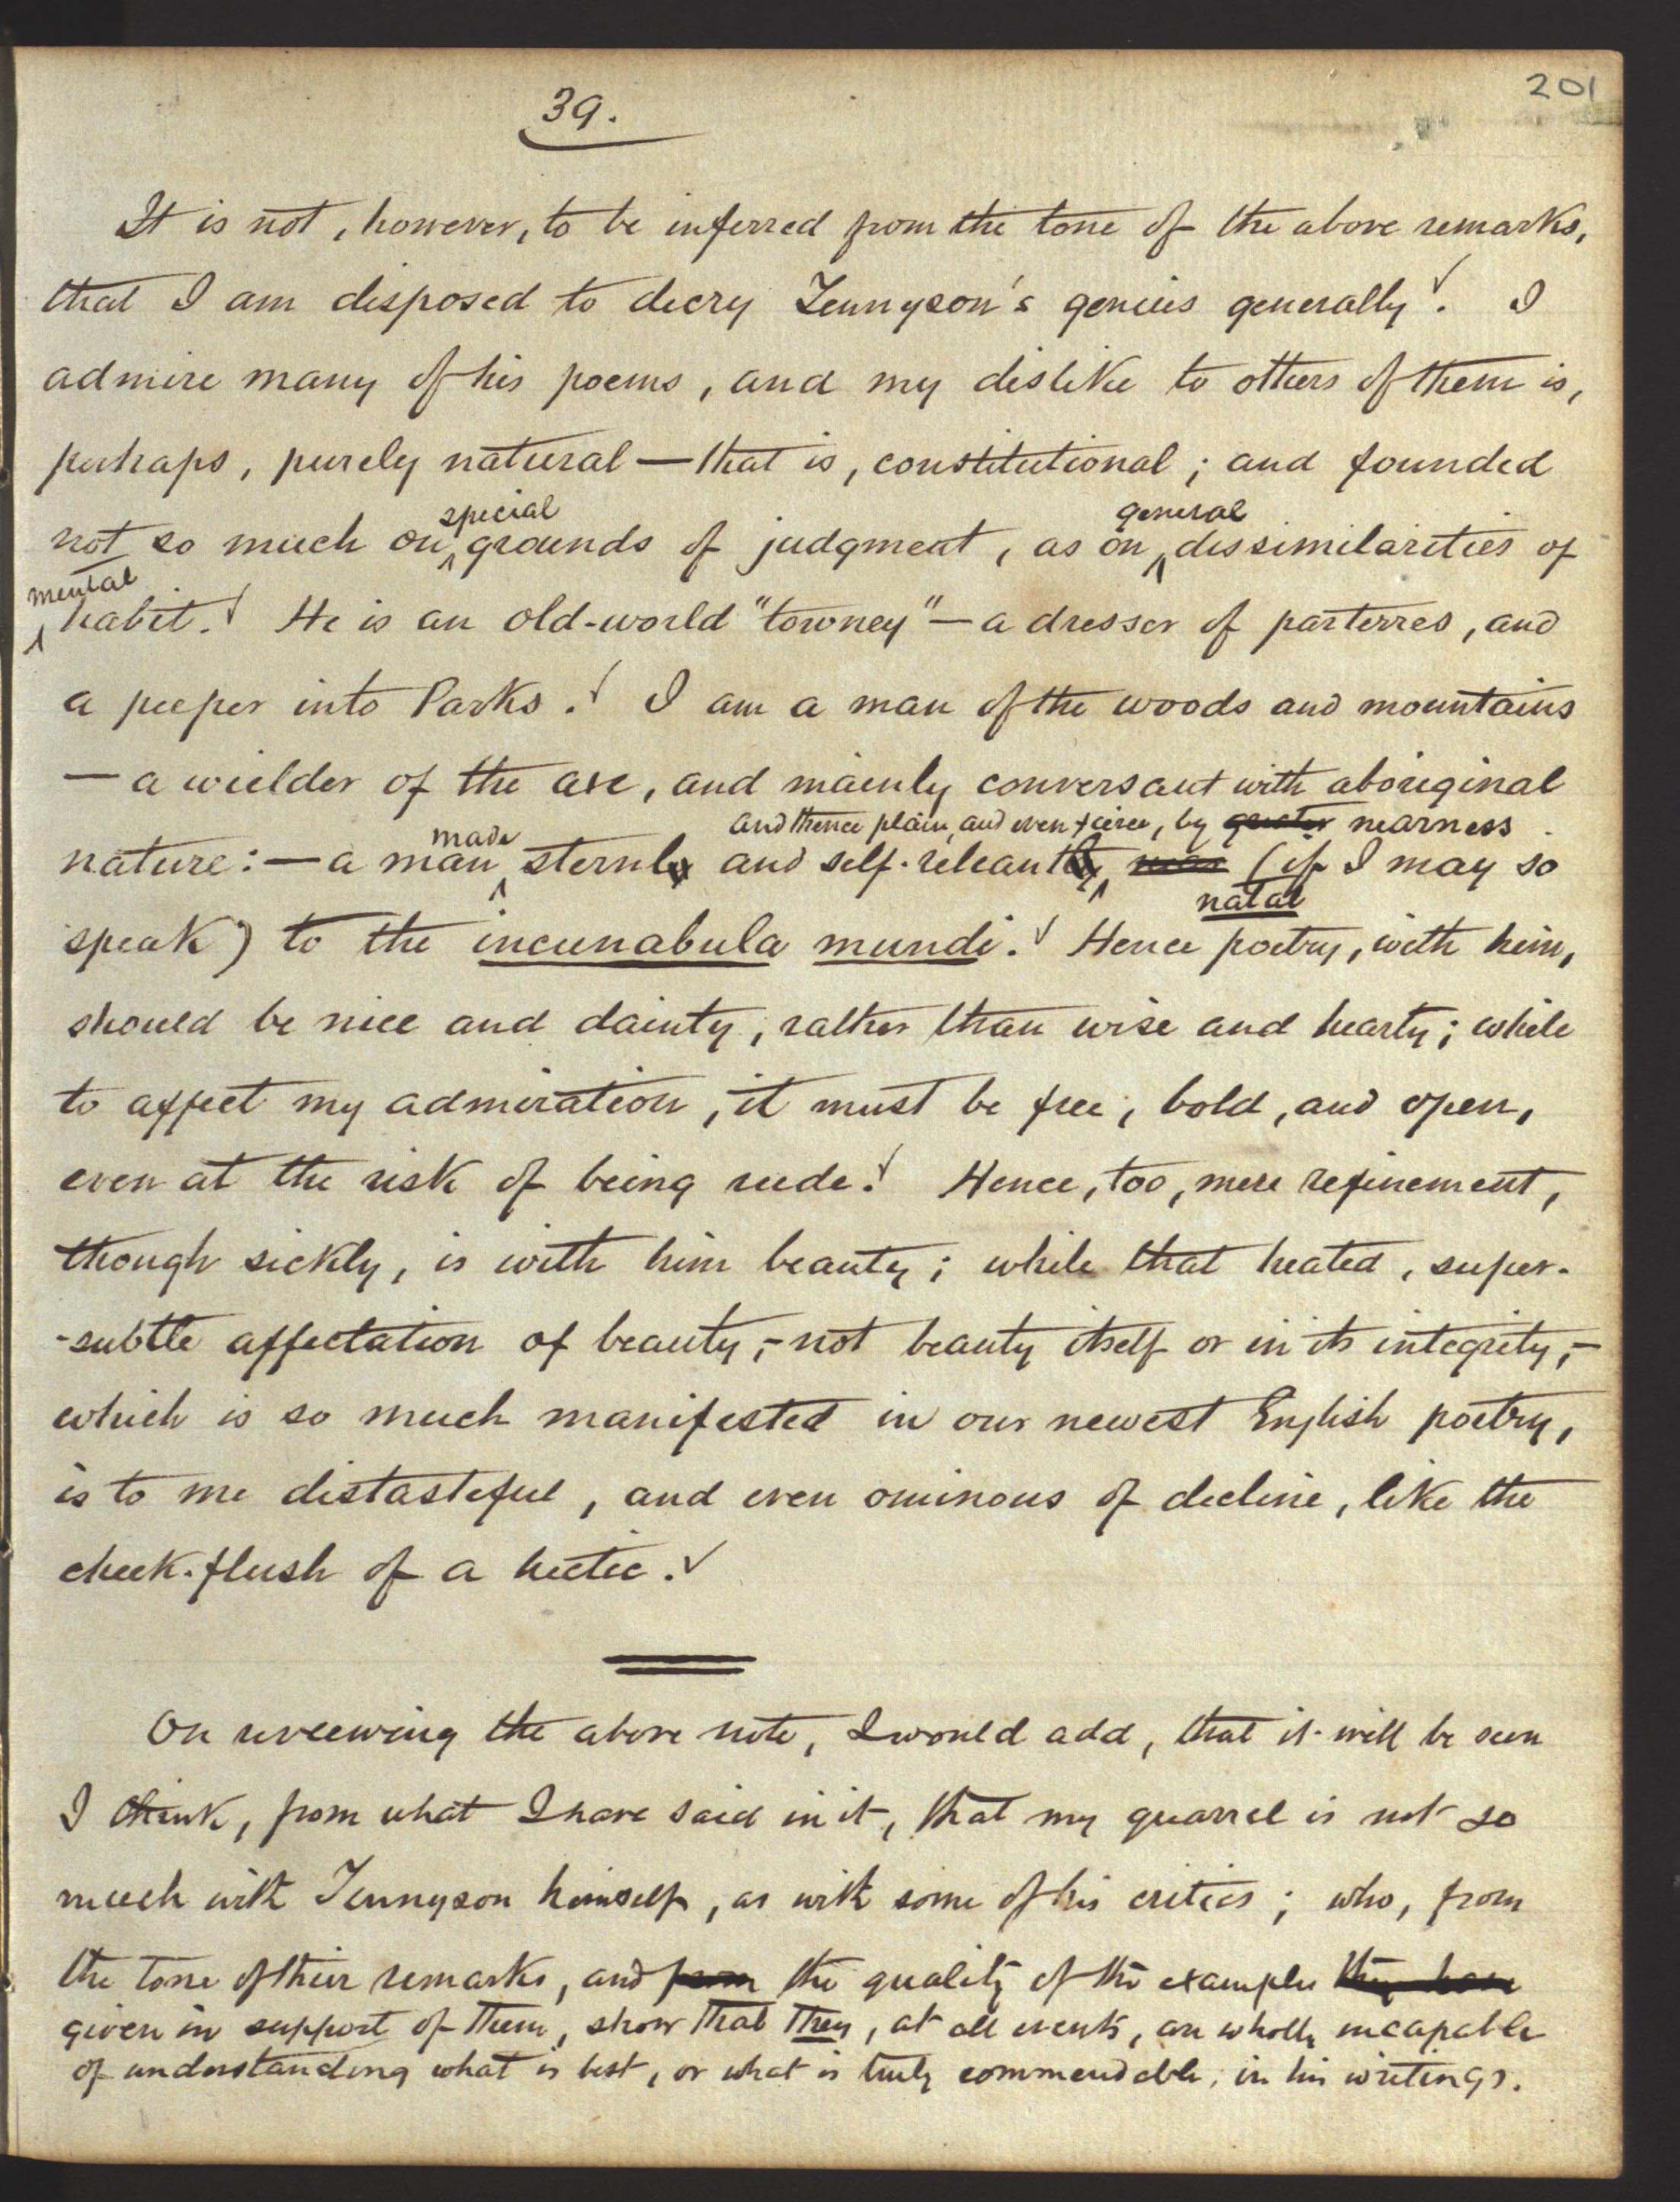 201
39.
It is not, however, to be inferred from the tone of the above remarks,
that I am disposed to decry Tennyson's genius generally. I
admire many of his poems, and my dislike to others of them is,
perhaps, purely natural — that is, constitutional; and founded
special general
not so much on grounds of judgment, as on dissimilarities of
mental
habit. He is an old-world "towney" — a dresser of parterres, and
a peeper into Parks. I am a man of the woods and mountains
— a wielder of the axe, and mainly conversant with aboriginal
made and thence plain, and even fierce, by greater nearness
nature: — a man sternly and self-reliantly (if I may so
natal
speak) to the incunabula mundi. Hence poetry, with him,
should be nice and dainty, rather than wise and hearty; while
to affect my admiration, it must be free, bold, and open,
even at the risk of being rude. Hence, too, mere refinement,
though sickly, is with him beauty; while that heated, super-
-subtle affectation of beauty, - not beauty itself or in its integrity, -
which is so much manifested in our newest English poetry,
is to me distasteful, and even ominous of decline, like the
cheek-flush of a hectic.
On reviewing the above note, I would add, that it will be seen
I think, from what I have said in it, that my quarrel is not so
much with Tennyson himself, as with some of his critics; who, from
the tone of their remarks, and from the quality of the examples they have
given in support of them, show that they, at all events, are wholly incapable
of understanding what is best, or what is truly commendable, in his writings.